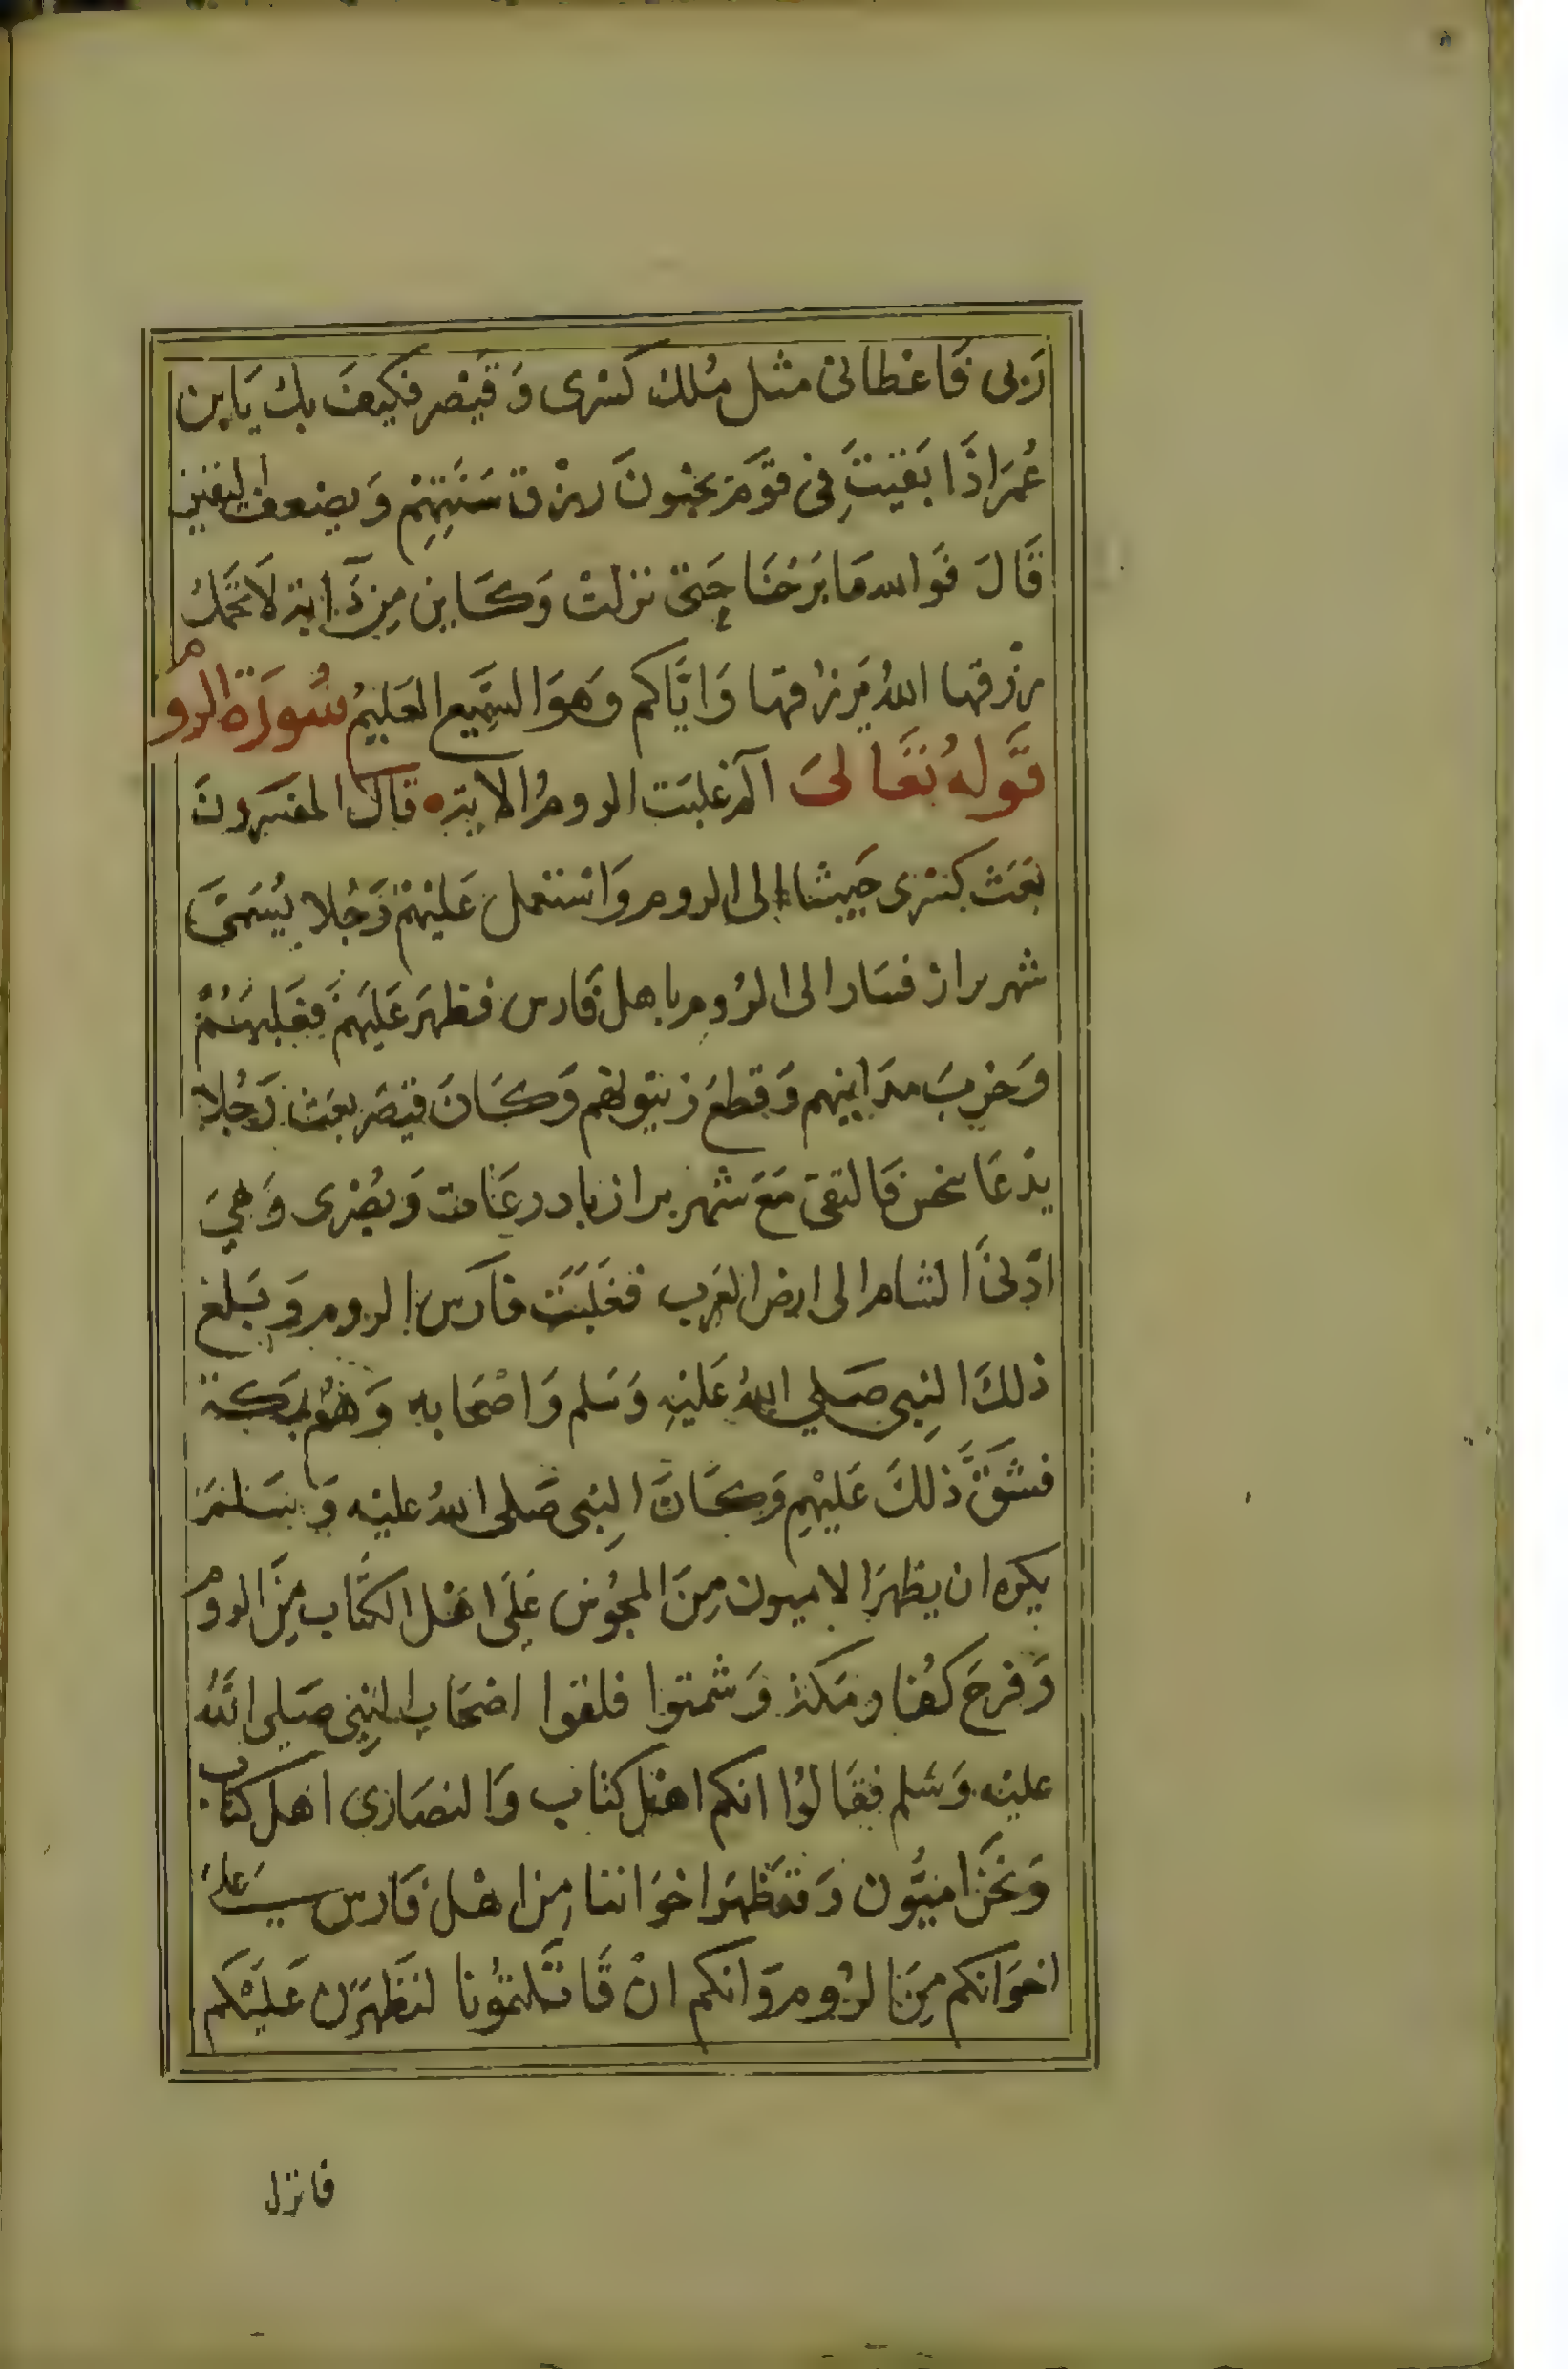 رَبى فَاعْطانى مثل مُلك كسْرى وَقَيْصر فكيفَ بك يَابن
عُمَرَ اذَا بَقيتَ فى قوَم يخبون رزق سَنَتِهِمْ وَيضعف اليقين
قَالَ فَوالله مَا بَرَحْنَا حَتى نزلتْ وَكَاين مِن دَابة لَا تحمل
رزْقها اللهُ يَرزُقها وَاياكم وَهوَ السَّميع العَليمُ سُورَة الروم
قوله تعَالىَ الم غلبَت الرومُ الاية قال المفسرونَ
بَعَث كسْرى جَيشا الى الروم وَاسْتعمل عَليْهمْ رَجُلا يُسَمىَّ
شهربراز فسَار الى الرُوم باهل فَارس فظهرَ عَليَهمْ فقَتلهُمْ
وَخربَ مدَاينهم وَقطعَ زيتونهم وَكَانَ قيصَر بعَث رَجُلا
يدْعَا يحنس فَالتقى مَعَ شهربراز باذرعَات وَبصْرى وَهيَ
ادْنىَ الشام الى ارض العَرب فغَلبَت فَارس الروم وَبَلغ
ذلكَ النبى صَلي اللهُ عَليْهِ وَسَلم وَاصْحَابه وَهُمْ بمَكة
فشقَّ ذَلكَ عَليْهِم وَكَانَ النبى صَلى اللهُ عليْه وَسَلمَ
يكره ان يظهرَ الاميون مِنَ المجُوس عَلَى اهْل الكتَاب مِنَ الروم
وَفرحَ كفُار مَكة وَشمتوا فلقوا اصْحَاب النبِى صَلى اللهُ
عليْه وَسَلم فقَالوُا انكم اهْل كتاب وَالنصَارى اهل كتاب
وَنحَن اميُّون وَقد ظهَرَ اخوَاننا مِن اهْل فَارس عَلى
اخوَانكم مِنَ الرُوم وَانكم انْ قَاتَلتمُونا لنَظهَرَن عَليَكم
فانزل